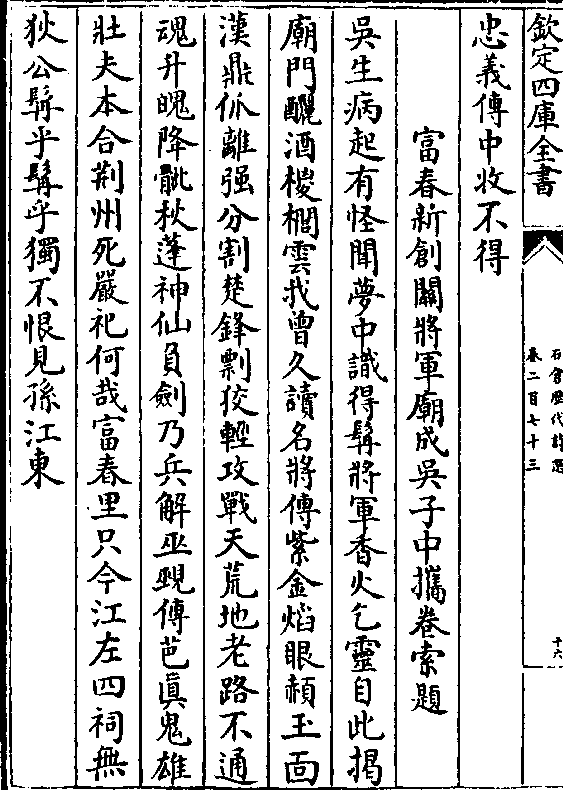 欽定四庫全書
石倉歷代詩選
卷二百七十三
十六
忠義傳中收不得
富春新創關將軍廟成吳子中攜卷索題
吳生病起有怪聞夢中識得髯將軍香火乞靈自此揭
廟門釃酒椶櫚雲我曾久讀名將傳紫金焰眼頳玉面
漢鼎仳離强分割楚鋒剽狡輕攻戰天荒地老路不通
魂升魄降骴秋蓬神仙負劍乃兵解巫覡傳芭眞鬼雄
壯夫本合荆州死嚴祀何哉富春里只今江左四祠無
狄公髯乎髯乎獨不恨見孫江東